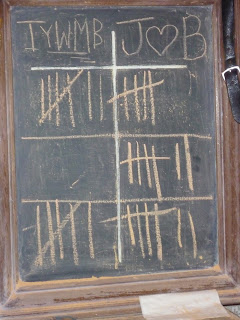 IYWMB J♡B